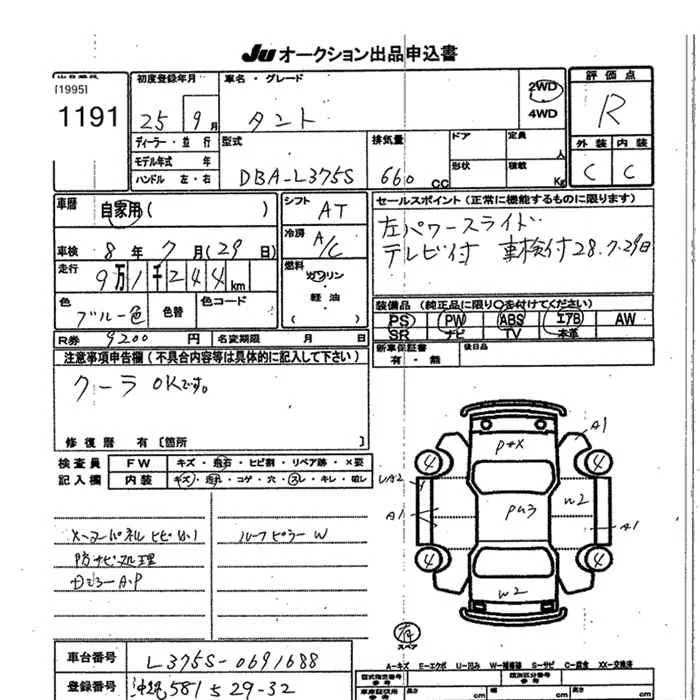 JU オークション出品申込書
[1995]
1191
初度登録年月
25 9月
車名・グレード
タント
2WD
4WD
評価点
R
外装 内装
C C
ディーラー・並行
モデル年式 年
ハンドル 左・右
型式
DBA-L375S
排気量
660 cc
ドア
形状
定員 人
積載 Kg
車歴 自家用( )
車検 8年7月(29日)
走行 9万1千244km
色 ブルー色 色替 色コード
シフト AT
冷房 A/C
燃料 ガソリン
軽油
セールスポイント(正常に機能するものに限ります)
左パワースライド
テレビ付 車検付28.7.29日
装備品(純正品に限り○を付けてください)
PS PW ABS エアB AW
SR ナビ TV 本革
新車保証書 有・無 後日品
R券 9200円 名変期限 月 日
注意事項申告欄(不具合内容等は具体的に記入して下さい)
クーラ OKです。
修復暦 有[箇所 ]
検査員 FW キズ・飛石・ヒビ割・リペア跡・×要
記入欄 内装 キズ・汚れ・コゲ・穴・スレ・キレ・破レ
防サビ処理
ルーフピラーW
P*X
A1
4 4
UA2
A1
PU3
W2
A1
4 4
W2
有
スペア
A-キズ E-エクボ U-凹み W-補修跡 S-サビ C-腐食 XX-交換済
車台番号 L375S-0691688
登録番号 沖縄581 ち 29-32
型式指定番号
類別区分番号
cm cm cm